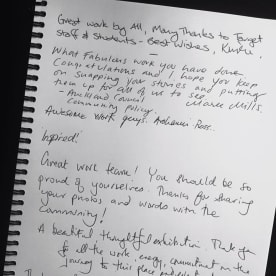 Great work by All, Many Thanks to
Staff & Students - Best Wishes,
What Fabulous work you have done
Congratulations and I hope you keep
on snapping your stories and putting
them up for all of us to see
- Auckland Council
Community Policy
Awesome work guys.
Inspired!
Great work team! You should be so
proud of yourselves. Thanks for sharing
your photos and words with the
Community!
A beautiful thoughtful exhibition. Thank you
for all the work, energy, commitment in the
journey to this place and